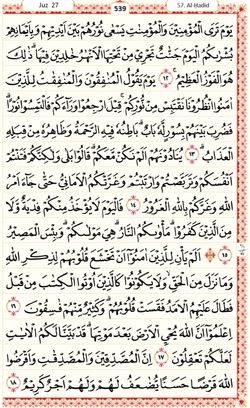 Juz 27
539
57. Al-Hadid
يَوْمَ تَرَى الْمُؤْمِنِيْنَ وَالْمُؤْمِنٰتِ يَسْعٰى نُوْرُهُمْ بَيْنَ اَيْدِيْهِمْ وَبِاَيْمَانِهِمْ
بُشْرٰىكُمُ الْيَوْمَ جَنّٰتٌ تَجْرِيْ مِنْ تَحْتِهَا الْاَنْهٰرُ خٰلِدِيْنَ فِيْهَاۗ ذٰلِكَ
هُوَ الْفَوْزُ الْعَظِيْمُ ١٢ يَوْمَ يَقُوْلُ الْمُنٰفِقُوْنَ وَالْمُنٰفِقٰتُ لِلَّذِيْنَ
اٰمَنُوا انْظُرُوْنَا نَقْتَبِسْ مِنْ نُّوْرِكُمْۚ قِيْلَ ارْجِعُوْا وَرَاۤءَكُمْ فَالْتَمِسُوْا نُوْرًاۗ
فَضُرِبَ بَيْنَهُمْ بِسُوْرٍ لَّهٗ بَابٌۗ بَاطِنُهٗ فِيْهِ الرَّحْمَةُ وَظَاهِرُهٗ مِنْ قِبَلِهِ
الْعَذَابُۗ ١٣ يُنَادُوْنَهُمْ اَلَمْ نَكُنْ مَّعَكُمْۗ قَالُوْا بَلٰى وَلٰكِنَّكُمْ فَتَنْتُمْ
اَنْفُسَكُمْ وَتَرَبَّصْتُمْ وَارْتَبْتُمْ وَغَرَّتْكُمُ الْاَمَانِيُّ حَتّٰى جَاۤءَ اَمْرُ
اللّٰهِ وَغَرَّكُمْ بِاللّٰهِ الْغَرُوْرُ ١٤ فَالْيَوْمَ لَا يُؤْخَذُ مِنْكُمْ فِدْيَةٌ وَّلَا
مِنَ الَّذِيْنَ كَفَرُوْاۗ مَأْوٰىكُمُ النَّارُۗ هِيَ مَوْلٰىكُمْۗ وَبِئْسَ الْمَصِيْرُ
١٥ اَلَمْ يَأْنِ لِلَّذِيْنَ اٰمَنُوْٓا اَنْ تَخْشَعَ قُلُوْبُهُمْ لِذِكْرِ اللّٰهِ
وَمَا نَزَلَ مِنَ الْحَقِّۙ وَلَا يَكُوْنُوْا كَالَّذِيْنَ اُوْتُوا الْكِتٰبَ مِنْ قَبْلُ
فَطَالَ عَلَيْهِمُ الْاَمَدُ فَقَسَتْ قُلُوْبُهُمْۗ وَكَثِيْرٌ مِّنْهُمْ فٰسِقُوْنَ ١٦
اِعْلَمُوْٓا اَنَّ اللّٰهَ يُحْيِ الْاَرْضَ بَعْدَ مَوْتِهَاۗ قَدْ بَيَّنَّا لَكُمُ الْاٰيٰتِ
لَعَلَّكُمْ تَعْقِلُوْنَ ١٧ اِنَّ الْمُصَّدِّقِيْنَ وَالْمُصَّدِّقٰتِ وَاَقْرَضُوا
اللّٰهَ قَرْضًا حَسَنًا يُّضٰعَفُ لَهُمْ وَلَهُمْ اَجْرٌ كَرِيْمٌ ١٨